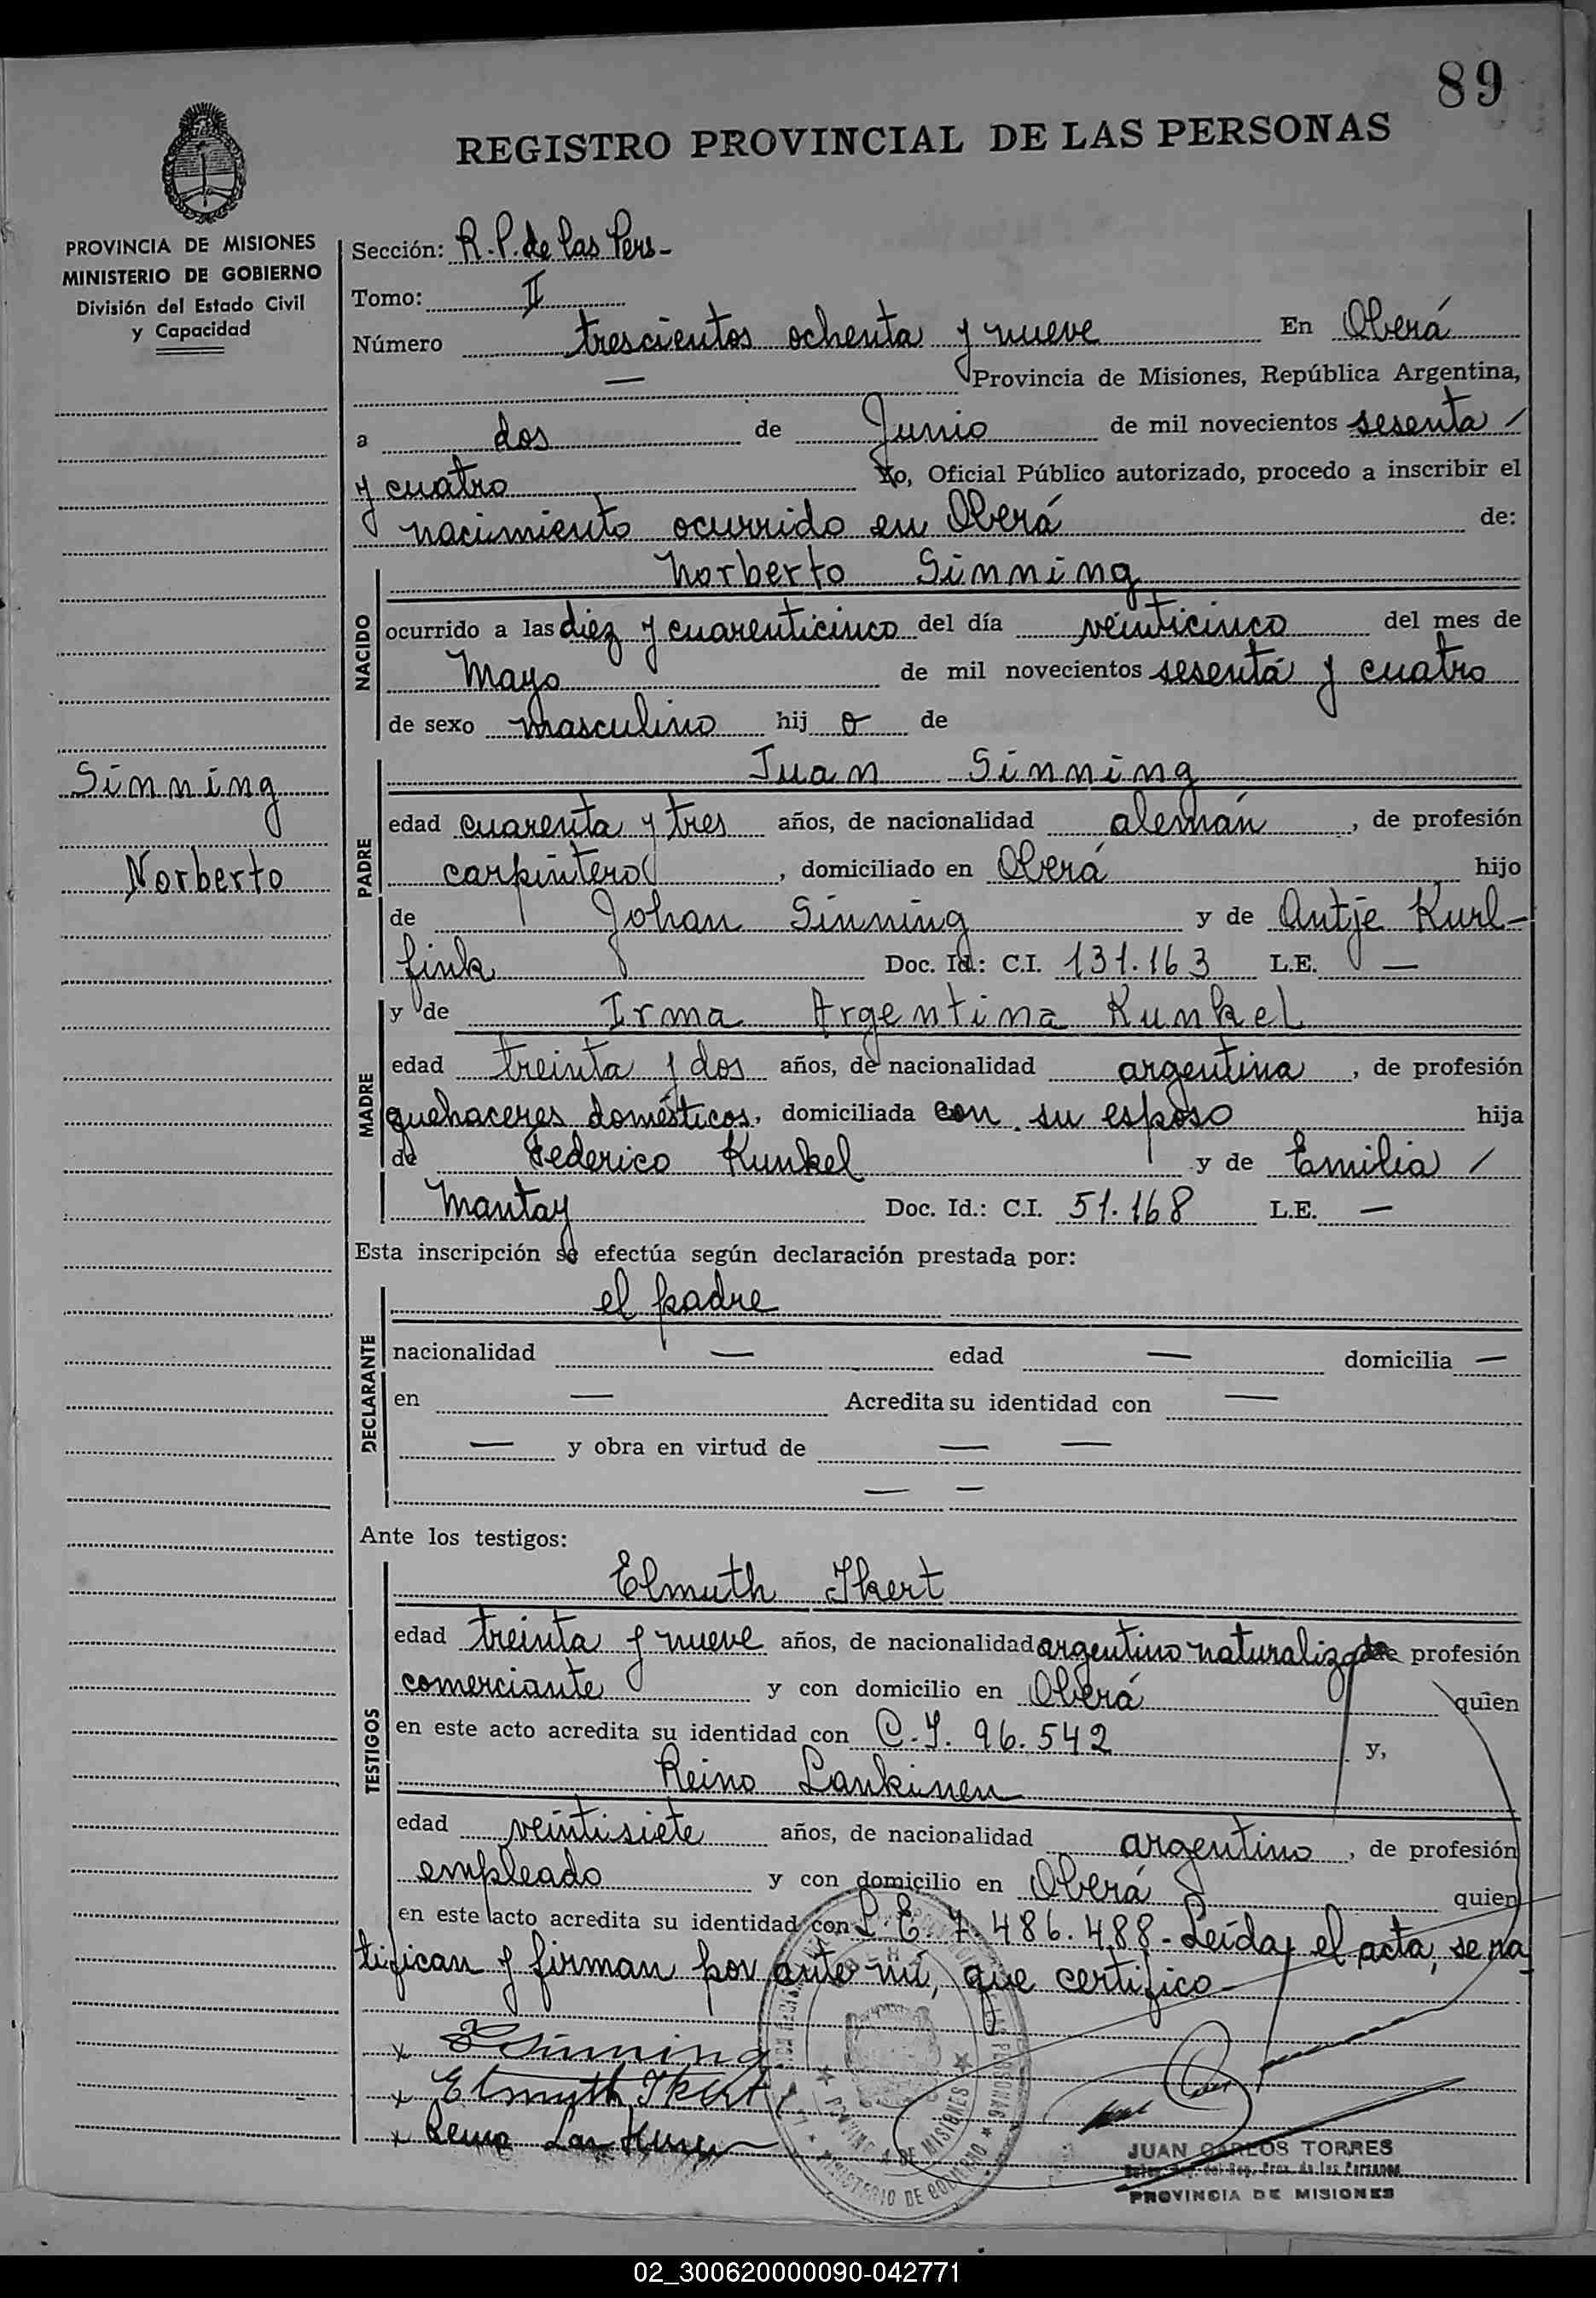 89
REGISTRO PROVINCIAL DE LAS PERSONAS
PROVINCIA DE MISIONES
MINISTERIO DE GOBIERNO
División del Estado Civil
y Capacidad
Sinning
Norberto
Sección: R.P. de las Pers-
Tomo: II
Número trescientos ochenta y nueve En Oberá
— Provincia de Misiones, República Argentina,
a dos de Junio de mil novecientos sesenta /
y cuatro Yo, Oficial Público autorizado, procedo a inscribir el
nacimiento ocurrido en Oberá de:
NACIDO
Norberto Sinning
ocurrido a las diez y cuarenticinco del día veinticinco del mes de
Mayo de mil novecientos sesenta y cuatro
de sexo masculino hij o de
PADRE
Juan Sinning
edad cuarenta y tres años, de nacionalidad alemán, de profesión
carpintero, domiciliado en Oberá hijo
de Johan Sinning y de Antje Kurl-
fink Doc. Id.: C.I. 131.163 L.E. —
MADRE
y de Irma Argentina Kunkel
edad treinta y dos años, de nacionalidad argentina, de profesión
quehaceres domésticos, domiciliada con su esposo hija
de Federico Kunkel y de Emilia /
Mantay Doc. Id.: C.I. 51.168 L.E. —
Esta inscripción se efectúa según declaración prestada por:
DECLARANTE
el padre
nacionalidad — edad — domicilia —
en — Acredita su identidad con —
— y obra en virtud de — —
— —
Ante los testigos:
TESTIGOS
Elmuth Ikert
edad treinta y nueve años, de nacionalidad argentino naturalizado de profesión
comerciante y con domicilio en Oberá quien
en este acto acredita su identidad con C.I. 96.542 y,
Reino Lankinen
edad veintisiete años, de nacionalidad argentino, de profesión
empleado y con domicilio en Oberá quien
en este acto acredita su identidad con L.E. 7.486.488-Leída el acta, se ra-
tifican y firman por ante mí, que certifico-
x Sinning
x Elmuth Ikert
x Reino Lankinen
PROVINCIA DE MISIONES
MINISTERIO DE GOBIERNO
JUAN CARLOS TORRES
PROVINCIA DE MISIONES
02_300620000090-042771